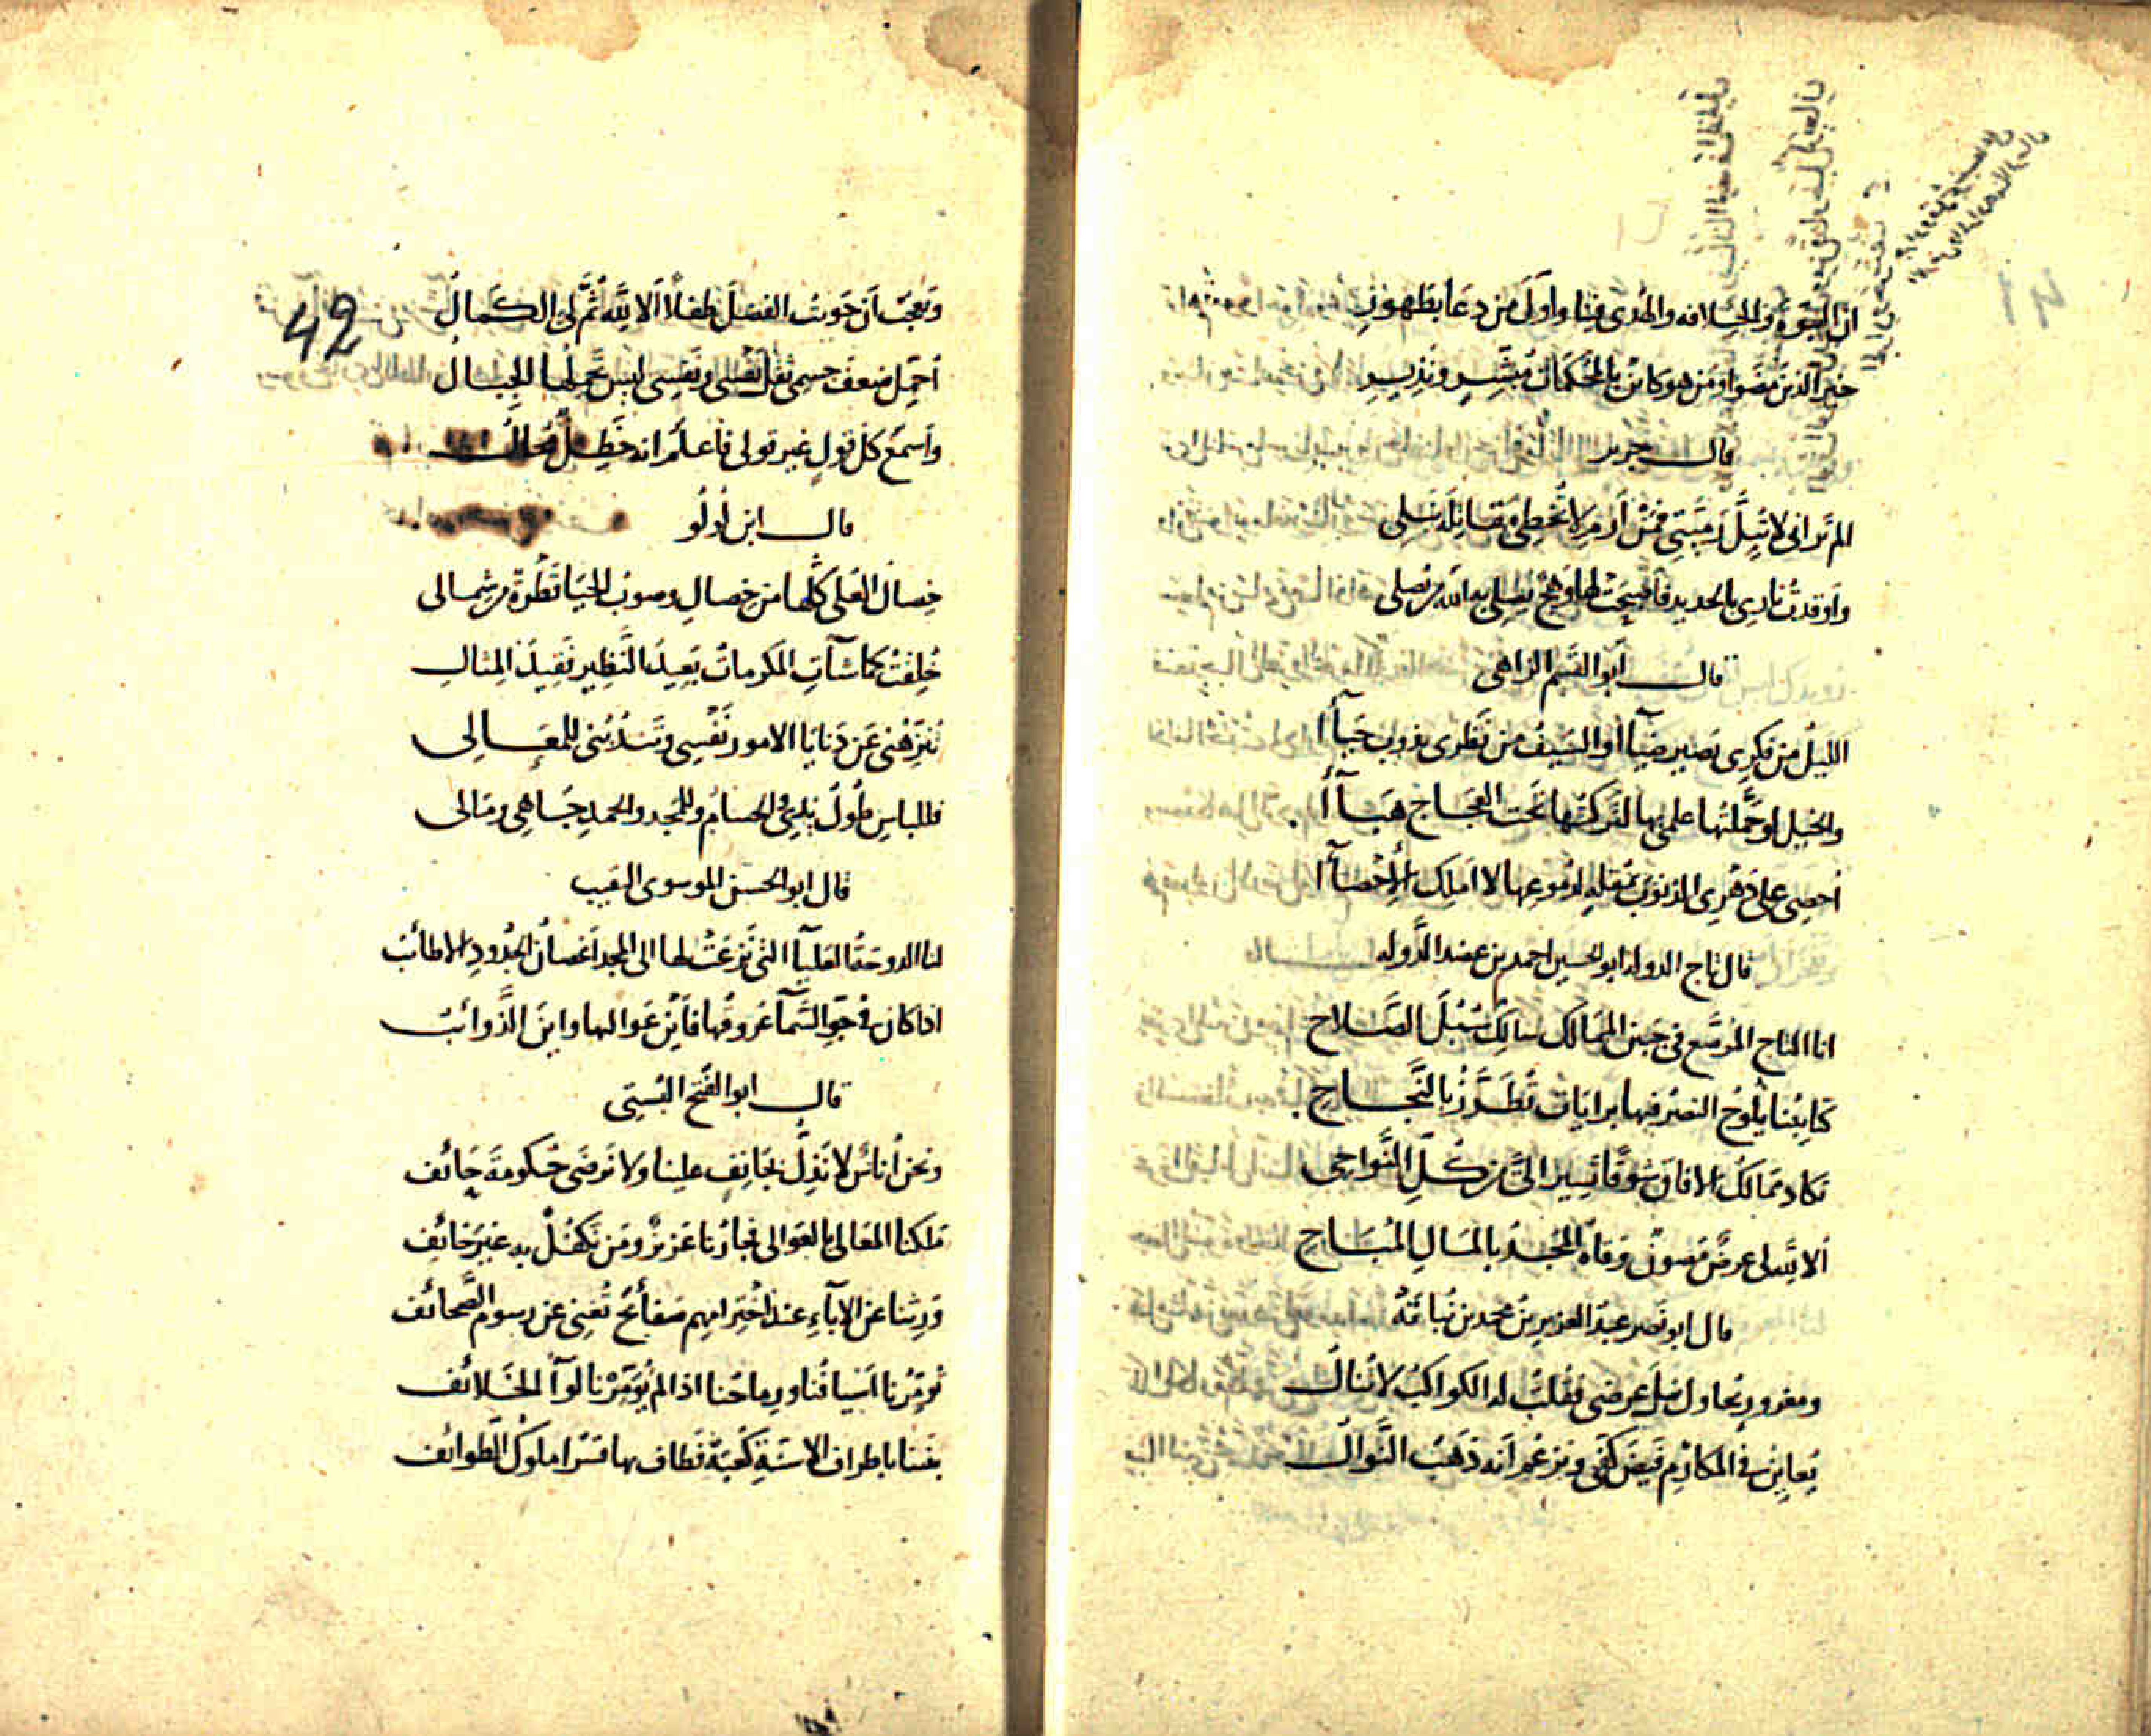 ان النبوة والخلافه والهدى فينا واول من دعا بظهور
خير الذين مضوا ومن هو كائن بالمحكمات مبشر ونذير
قال جرير
الم تر انى لا تبل رميتى فمن ارم لا تخطى مقاتله نبلى
واوقدت نارى بالحديد فاصبحت لها وهج يصلى به الله من يصلى
قال ابو القسم الزاهى
الليل من فكرى يصير ضيآا والسيف من نظرى يذوب حيآا
والخيل لو حملتها علمى بها لتركتها تحت العجاج هبآا
احصى على دهرى الذنوب بمقله لدموعها لا املك الاحصآا
قال تاج الدوله ابو الحسين احمد بن عضد الدوله
انا التاج المرصع فى جبين الممالك سالك سبل الصلاح
كتايبنا يلوح النصر فيها برايات تطرز بالنجاح
تكاد ممالك الافاق شوقا تسير الى من كل النواحى
الا لله لى عرض مصون وقاه المجد بالمال المباح
قال ابو نصر عبد العزيز بن محمد بن نباتة
ومغرور يحاول نيل عرضى فقلت له الكواكب لا تنال
يعاين فى المكارم فيض كفى ويزعم انه ذهب النوال
49
وتعجب ان حويت الفضل طفلا الا لله ثم لى الكمال
احمل ضعف جسمى ثقل نفسى ونفسى ليس تحملها الجبال
واسمع كل قول غير قولى فاعلم انه خطل محال
قال ابن لولو
خصال العلى كلها من خصالى وصوب الحيا قطرة من شمالى
خلقت كما شآت المكرمات بعيد النظير فقيد المثال
تنزهنى عن دنايا الامور نفسى وتندبنى للمعالى
فللباس طول يدى والحسام وللمجد والحمد جاهى ومالى
قال ابو الحسن الموسوى النقيب
لنا الدوحة العليآ التى نزعت لها الى المجد اغصان الجدود الاطائب
اذا كان فى جو السمآ عروقها فاين عواليها واين الذوائب
قال ابو الفتح البستى
ونحن اناس لا نذل لجانف علينا ولا نرضى حكومة جائف
ملكنا المعالى بالعوالى فجارنا عزيز ومن نكفل به غير خائف
ورثنا عن الابآء عند اخترامهم صفائح تغنى عن رسوم الصحائف
تؤمرنا اسيافنا ورماحنا اذا لم يؤمرنا لوآ الخلائف
بنينا باطراف الاسنة كعبة فطاف بها قسرا ملوك الطوائف